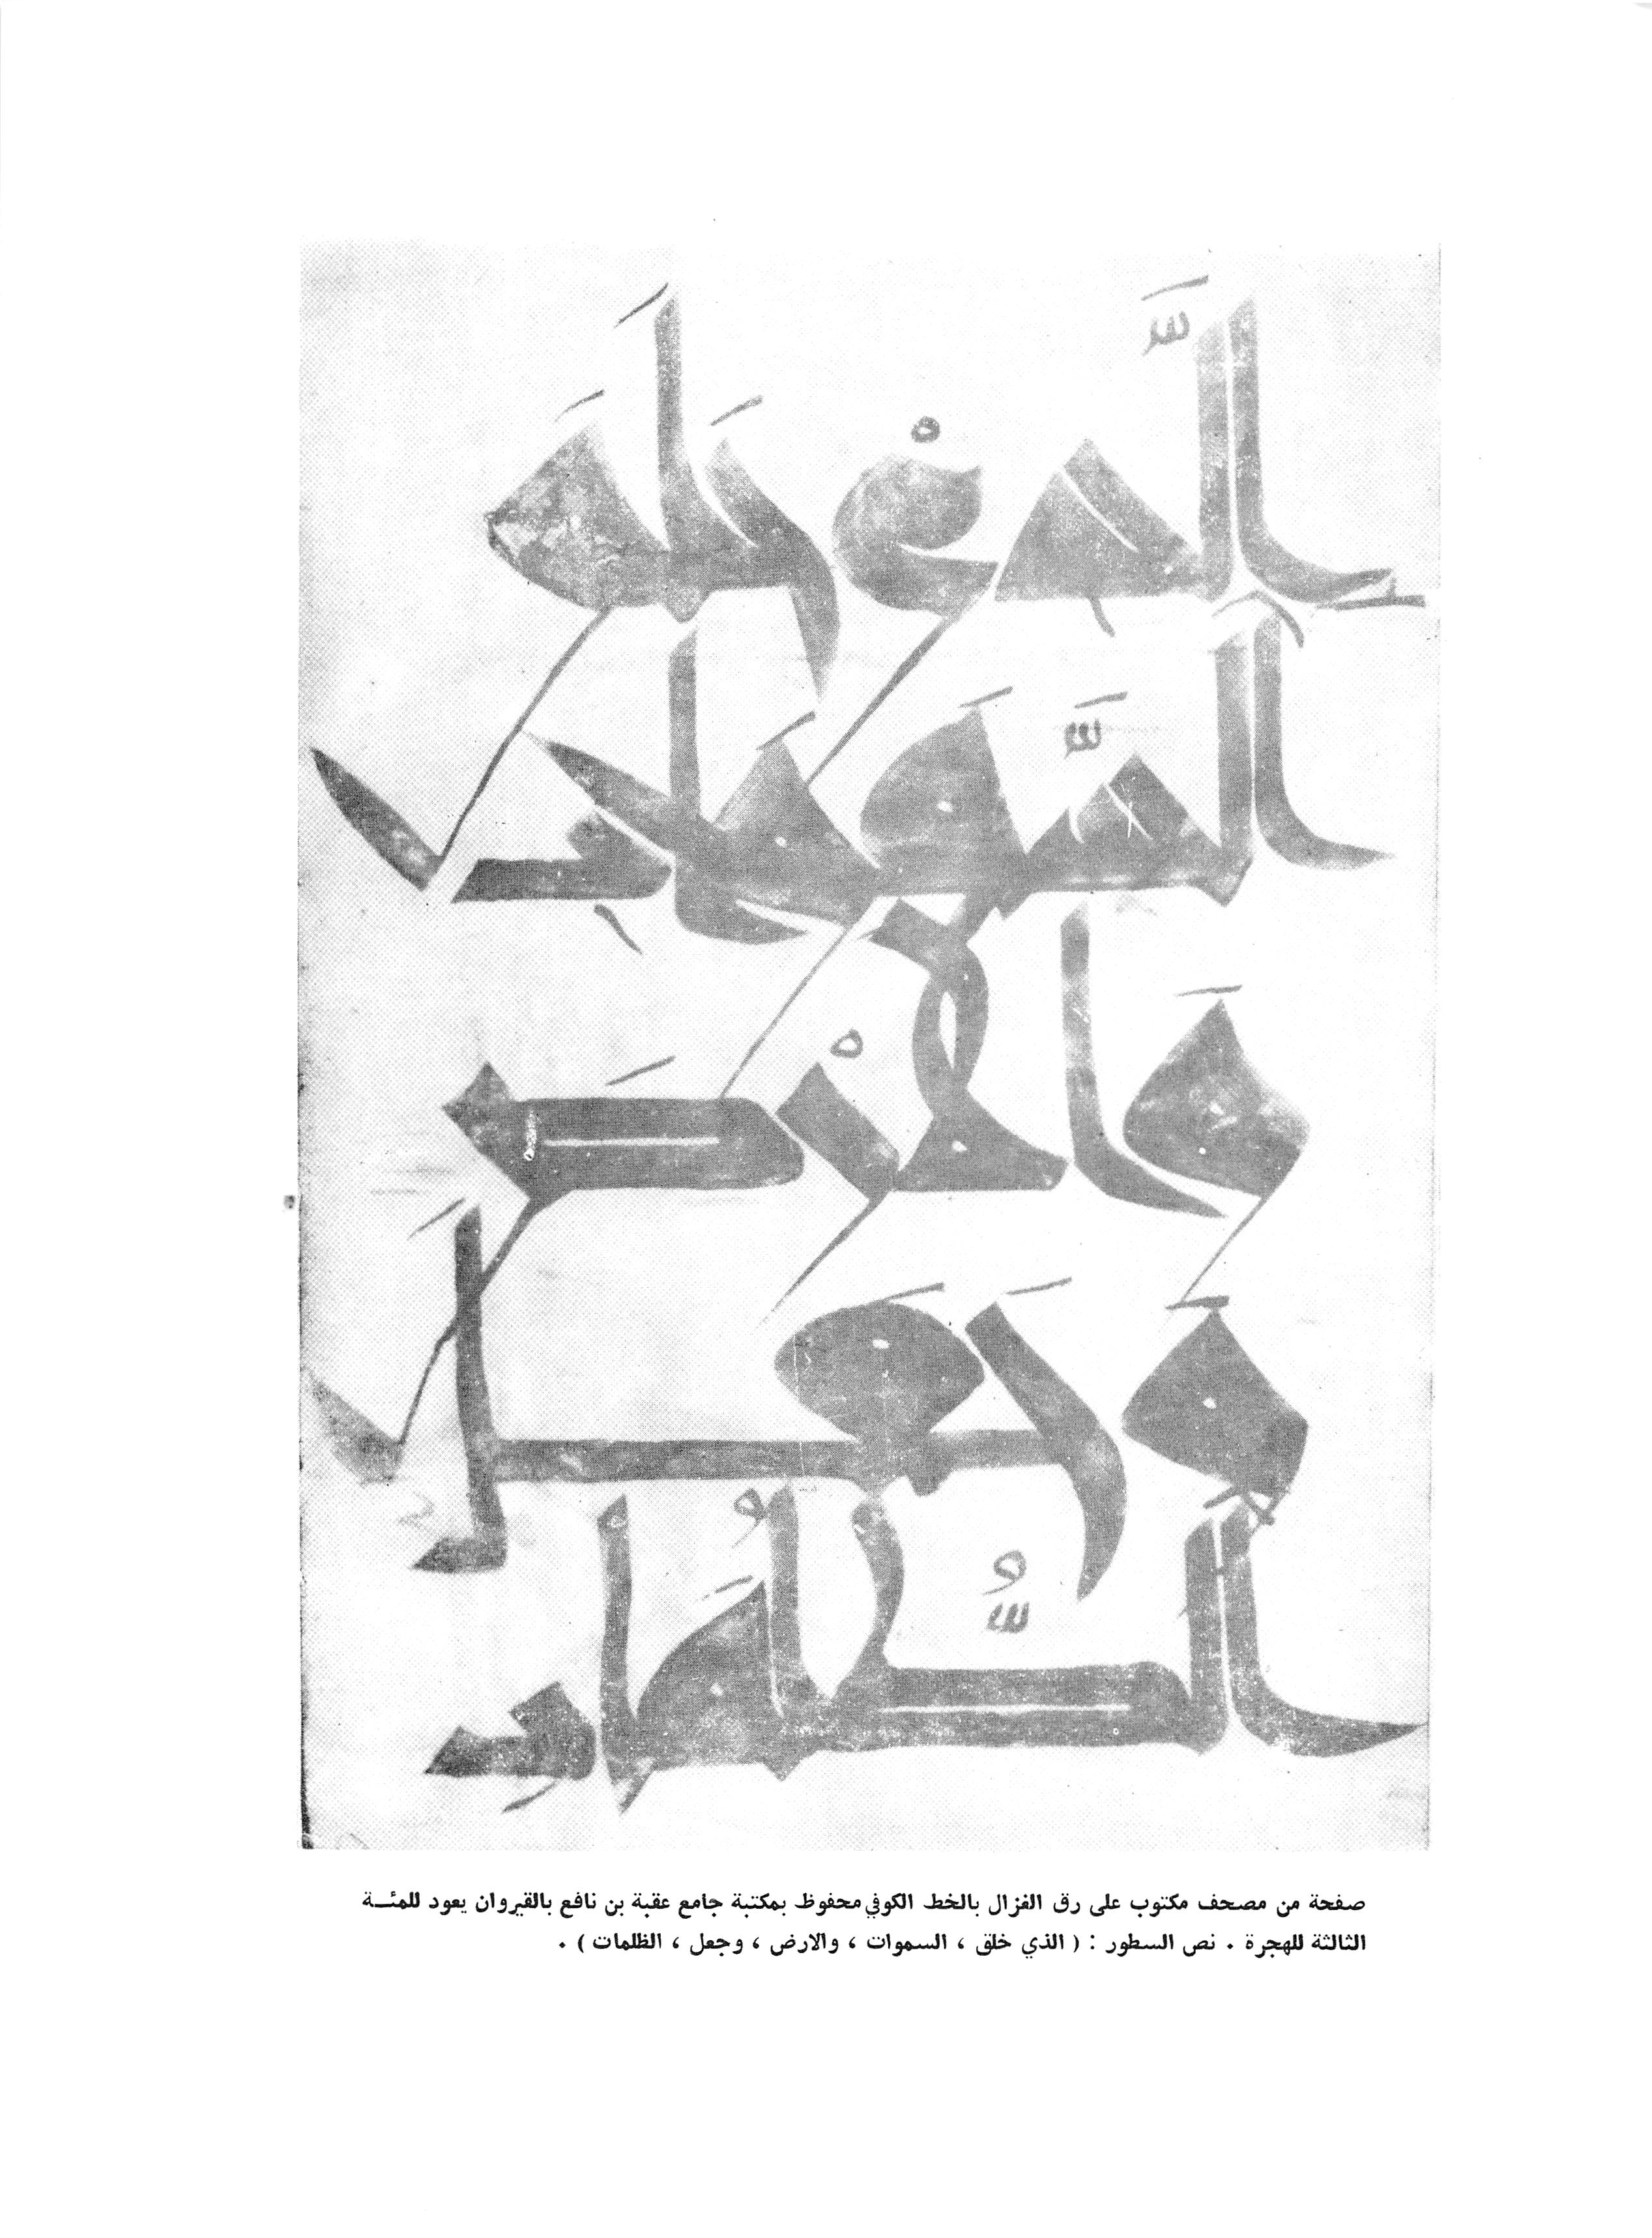 الَّذِي خَلَقَ
السَّمَوَاتِ
وَالْأَرْضَ
وَجَعَلَ
الظُّلُمَاتِ
صفحة من مصحف مكتوب على رق الغزال بالخط الكوفي محفوظ بمكتبة جامع عقبة بن نافع بالقيروان يعود للمئـة
الثالثة للهجرة . نص السطور : ( الذي خلق ، السموات ، والارض ، وجعل ، الظلمات ) .